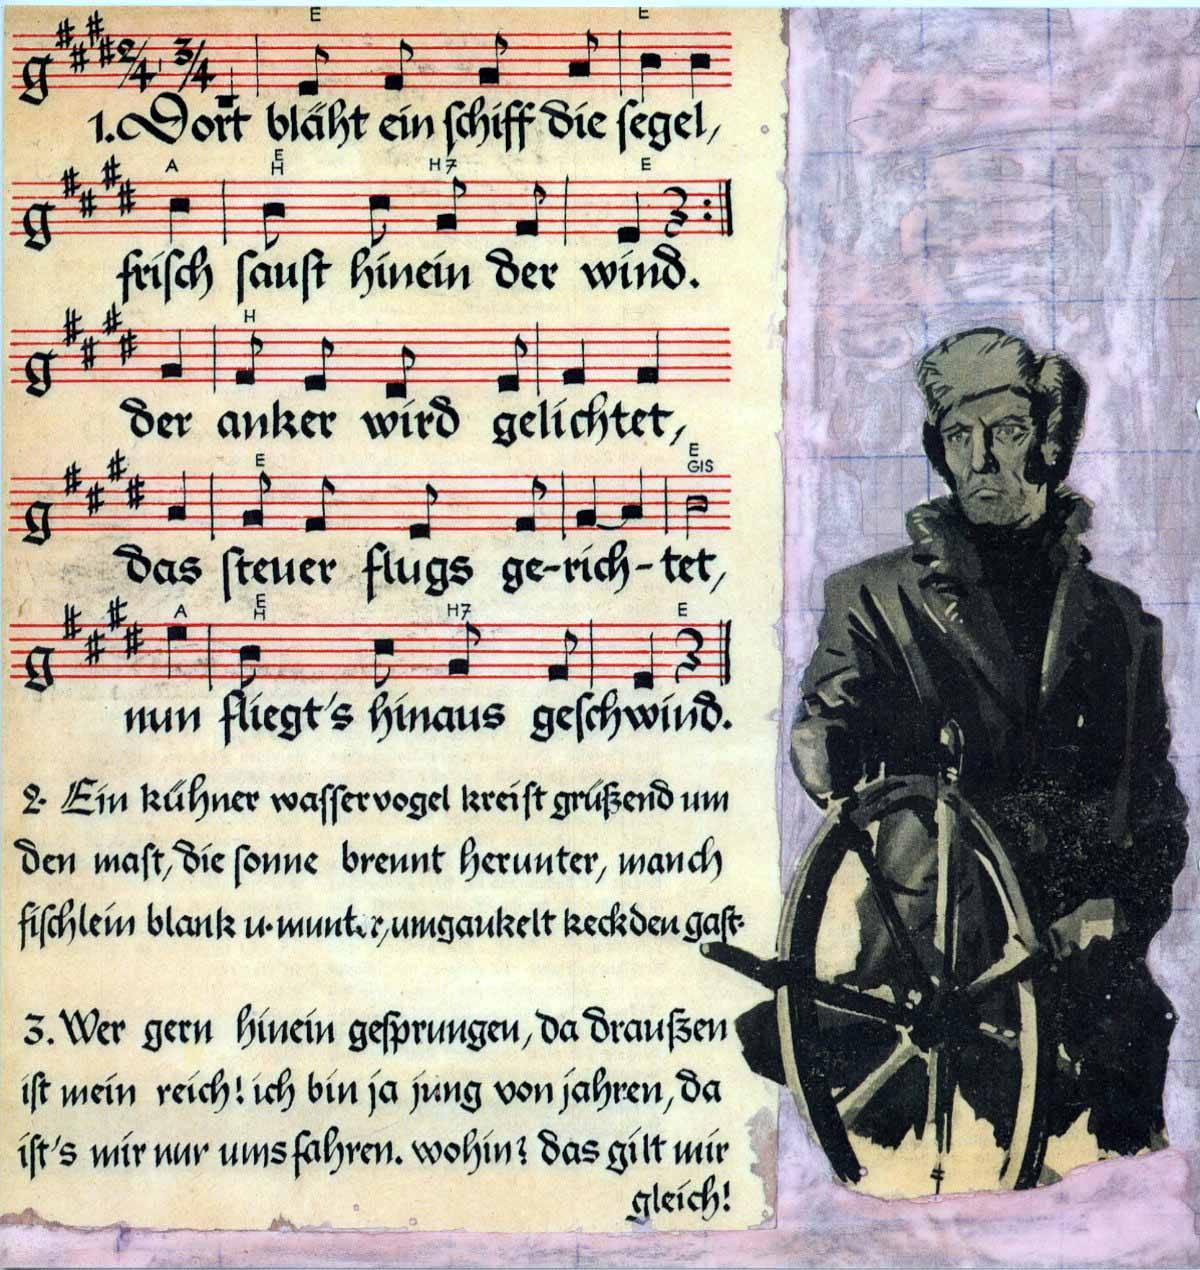 E E
g 2/4, 3/4
1. Dort bläht ein schiff die segel,
A E H H7 E
g
frisch saust hinein der wind.
H
g
der anker wird gelichtet,
E E GIS
g
das steuer flugs ge-rich-tet,
A E H H7 E
g
nun fliegt's hinaus geschwind.
2. Ein kühner wasservogel kreist grüßend um
den mast, die sonne brennt herunter, manch
fischlein blank u. munter, umgaukelt keck den gast.
3. Wer gern hinein gesprungen, da draußen
ist mein reich! ich bin ja jung von jahren, da
ist's mir nur ums fahren. wohin? das gilt mir
gleich!